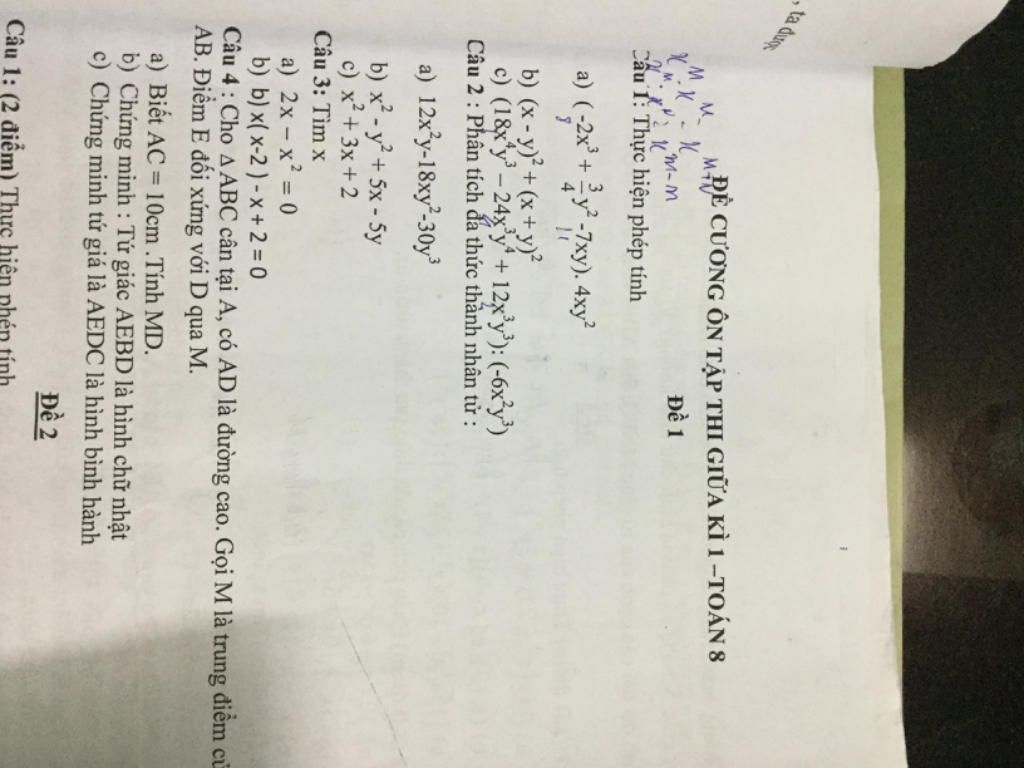 , ta được
ĐỀ CƯƠNG ÔN TẬP THI GIỮA KÌ 1 –TOÁN 8
Đề 1
Câu 1: Thực hiện phép tính
a) ( -2x³ + 3/4 y² -7xy). 4xy²
b) (x - y)² + (x + y)²
c) (18x⁴y³ – 24x³y⁴ + 12x³y³): (-6x²y³)
Câu 2 : Phân tích đa thức thành nhân tử :
a) 12x²y-18xy²-30y³
b) x² - y² + 5x - 5y
c) x² + 3x + 2
Câu 3: Tìm x
a) 2x – x² = 0
b) b) x( x-2 ) - x + 2 = 0
Câu 4 : Cho Δ ABC cân tại A, có AD là đường cao. Gọi M là trung điểm củ
AB. Điểm E đối xứng với D qua M.
a) Biết AC = 10cm .Tính MD.
b) Chứng minh : Tứ giác AEBD là hình chữ nhật
c) Chứng minh tứ giá là AEDC là hình bình hành
Đề 2
Câu 1: (2 điểm) Thực hiện phép tính